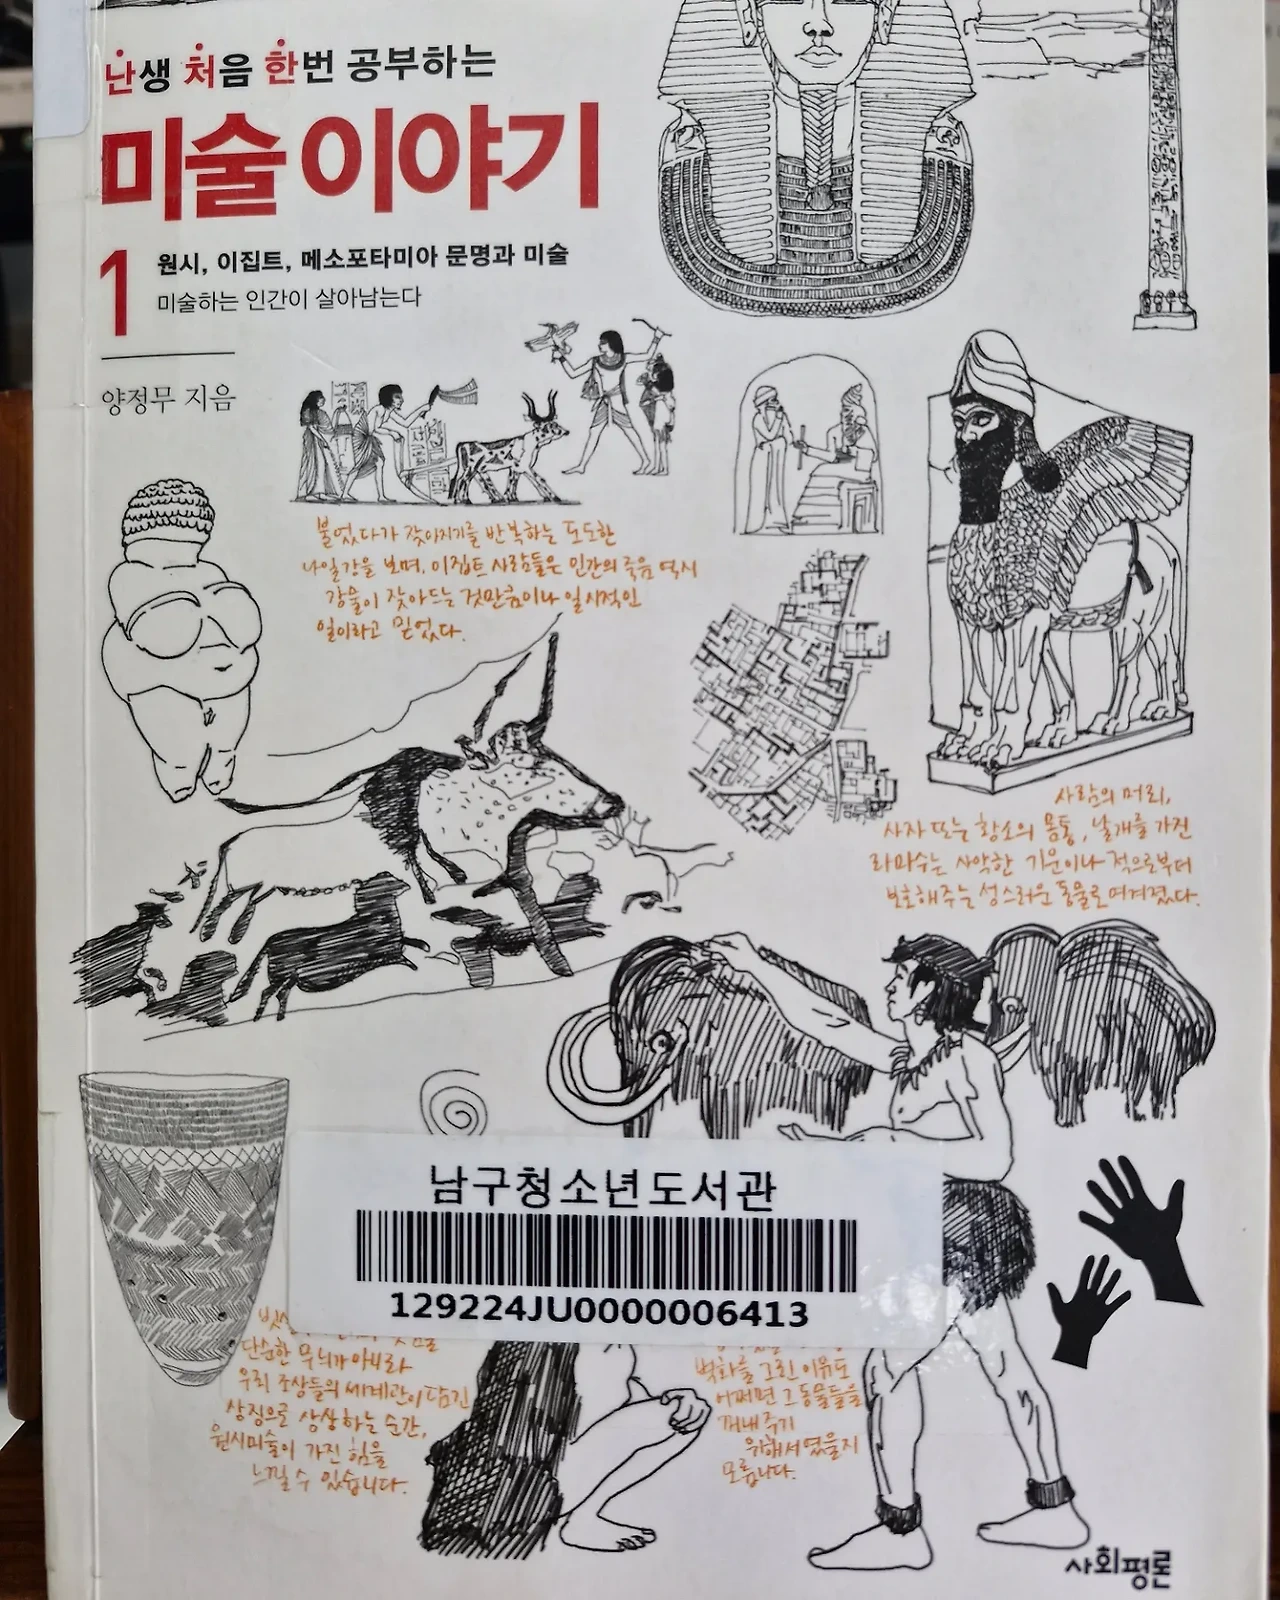 난생 처음 한번 공부하는
미술 이야기
1
원시, 이집트, 메소포타미아 문명과 미술
미술하는 인간이 살아남는다
양정무 지음
불었다가 잦아지기를 반복하는 도도한
나일강을 보며, 이집트 사람들은 인간의 죽음 역시
강물이 잦아드는 것만큼이나 일시적인
일이라고 믿었다.
사람의 머리,
사자 또는 황소의 몸통, 날개를 가진
라마수는 사악한 기운이나 적으로부터
보호해주는 성스러운 동물로 여겨졌다.
남구청소년도서관
129224JU0000006413
단순한 무늬가 아니라
우리 조상들의 세계관이 담긴
상징으로 상상하는 순간,
원시미술이 가진 힘을
느낄 수 있습니다.
벽화를 그린 이유도
어쩌면 그 동물들을
꺼내주기
위해서였을지
모릅니다.
사회평론